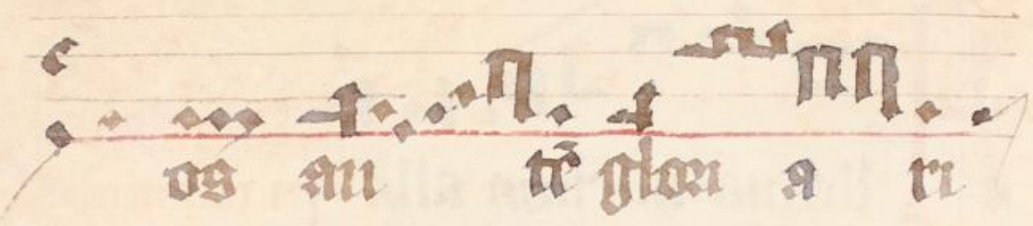 os au tē glori a ri